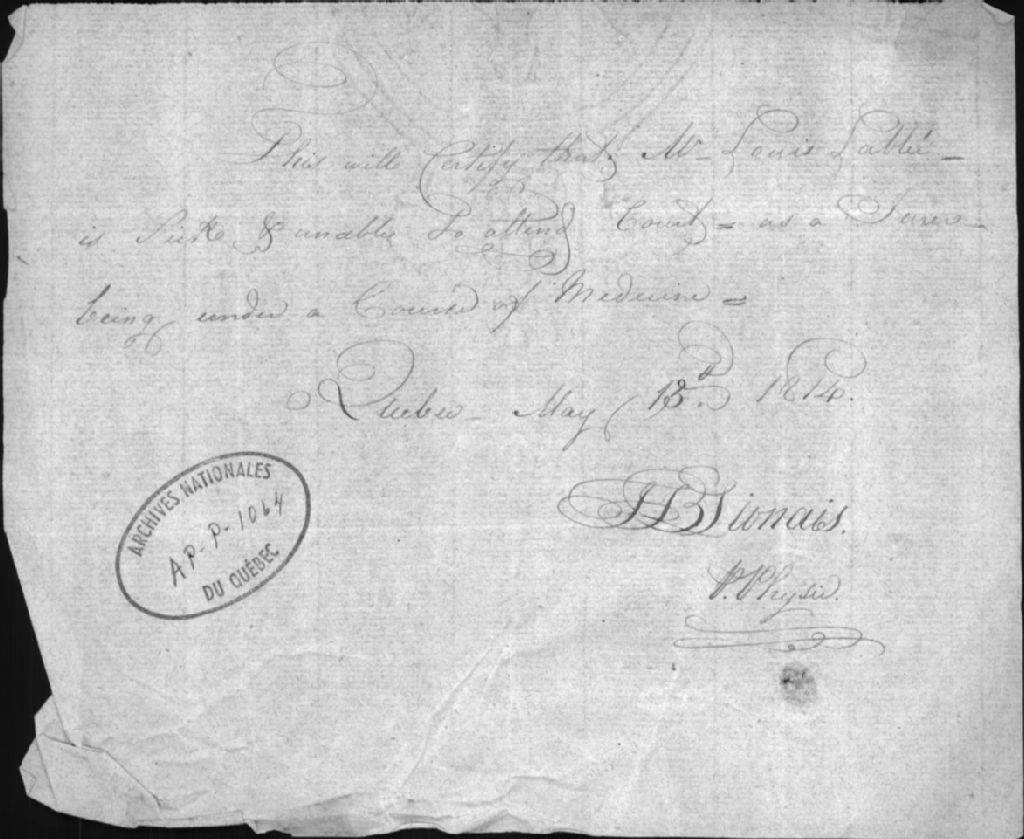 This will Certify that Mr Louis Labbé
is Sick & unable To attend Court = as a
being under a Course of Medecine =
Quebec - May 18th. 1814.
Lionais.
P. Physic.
ARCHIVES NATIONALES
AP-P-1064
DU QUÉBEC